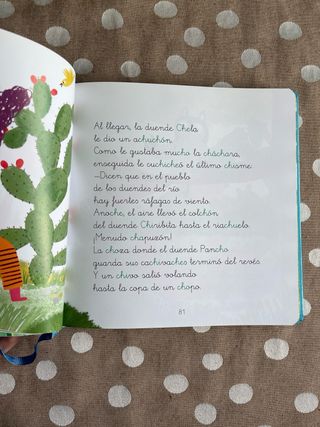 Al llegar, la duende Chela
le dio un achuchón.
Como le gustaba mucho la cháchara,
enseguida le cuchicheó el último chisme:
—Dicen que en el pueblo
de los duendes del río
hay fuertes ráfagas de viento.
Anoche, el aire llevó el colchón
del duende Chiribita hasta el riachuelo.
¡Menudo chapuzón!
La choza donde el duende Pancho
guarda sus cachivaches terminó del revés.
Y un chivo salió volando
hasta la copa de un chopo.
81